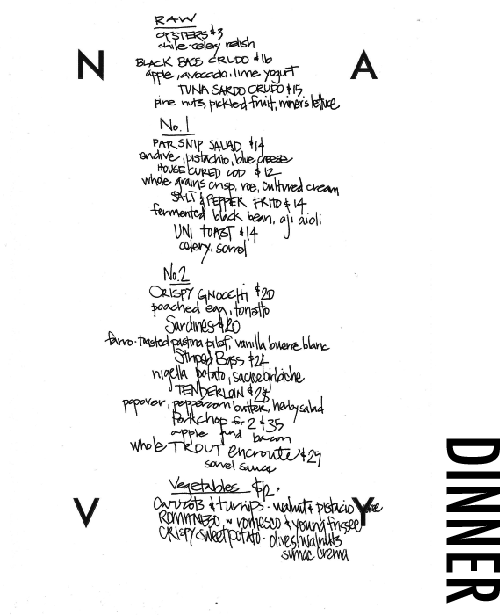 RAW
OYSTERS $3
chile celery relish
N A
BLACK BASS CRUDO $16
apple, avocado, lime yogurt
TUNA SARDO CRUDO $15
pine nuts, pickled fruit, miner's lettuce
No. 1
PARSNIP SALAD $14
endive, pistachio, blue cheese
HOUSE CURED COD $12
whole grains crisp, roe, cultured cream
SALT & PEPPER FRITO $14
fermented black bean, aji aioli
UNI TOAST $14
celery, sorrel
No. 2
CRISPY GNOCCHI $20
poached egg, tomatto
Sardines $20
farro-toasted pilaf, vanilla buerre blanc
Striped Bass $24
nigella potato,
TENDERLOIN $28
popover, peppercorn butter, herby salad
Porkchop for 2 $35
apple fund bacon
whole TROUT encroute $29
sorrel sumac
DINNER
Vegetables $12.
V Y
Carrots & turnips - walnut & pistachio
ROMANESCO - romesco & young frissee
CRISPY Sweet potato - olives, walnuts
sumac crema